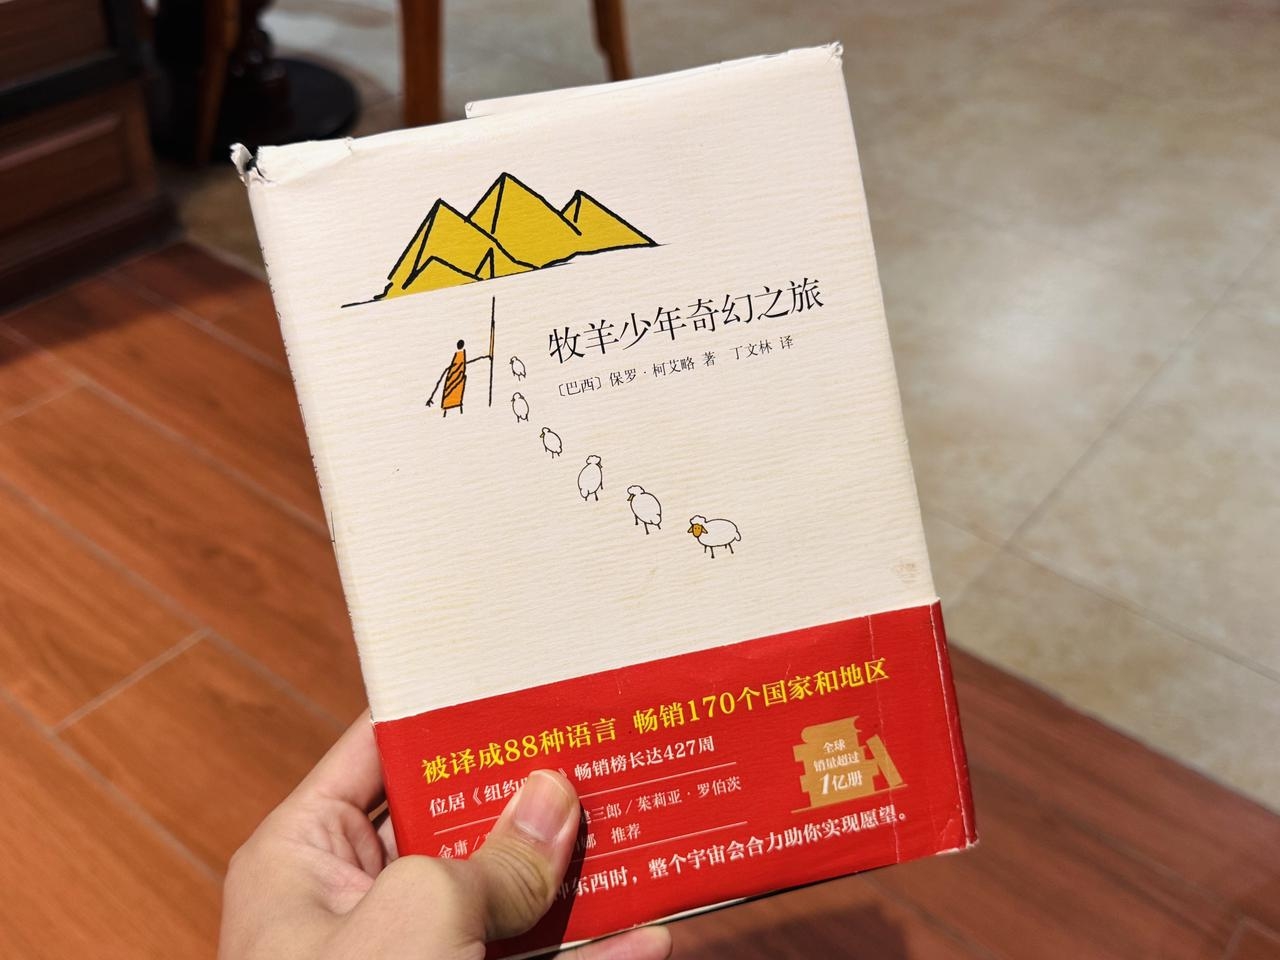 牧羊少年奇幻之旅
〔巴西〕保罗·柯艾略 著 丁文林 译
被译成88种语言 畅销170个国家和地区
位居《纽约 》畅销榜长达427周
金庸/ 三郎/茱莉亚·罗伯茨
娜 推荐
东西时，整个宇宙会合力助你实现愿望。
全球
销量超过
1亿册